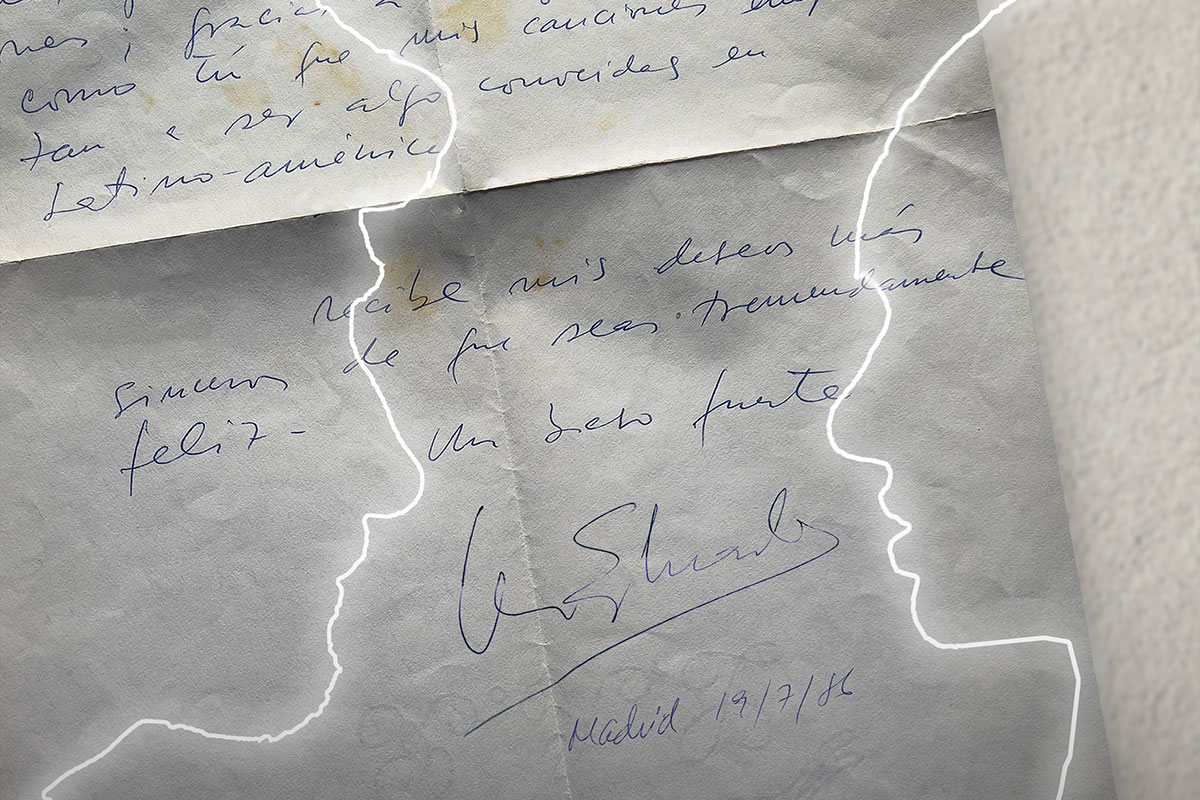 nes ; gracias a
como tú que mis canciones
tan a ser algo conocidas en
Latino-américa
recibe mis deseos más
sinceros de que seas tremendamente
feliz - Un beso fuerte
Madrid 19/7/86